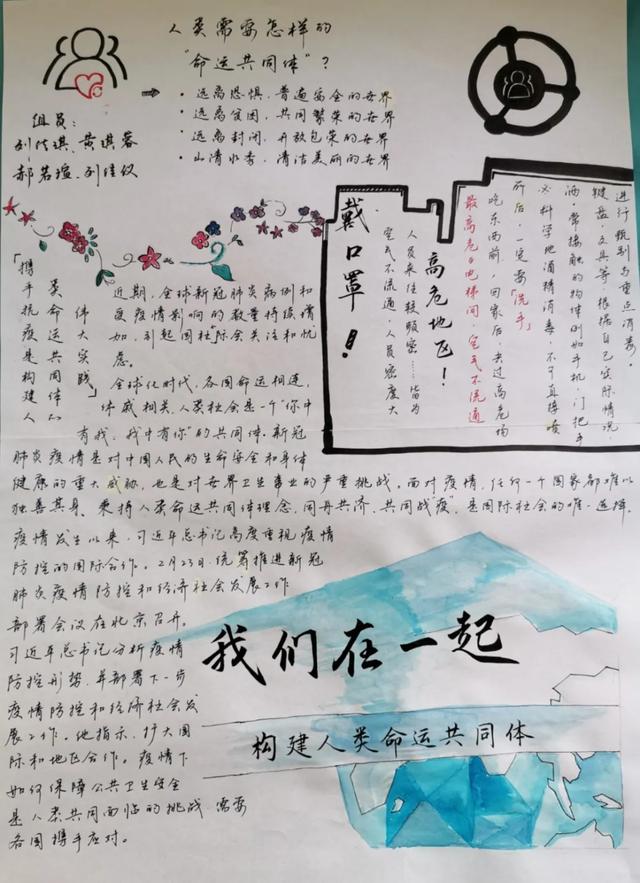 人类需要怎样的
“命运共同体”？
· 远离恐惧、普遍安全的世界
· 远离贫困、共同繁荣的世界
· 远离封闭、开放包容的世界
· 山清水秀、清洁美丽的世界
组员：
刘佳琪、黄琪蓉
郝若瑄、刘佳仪
进行甄别与重点消毒。
键盘、文具等，根据自己实际情况，
洒，常接触的物体例如手机、门把手
必科学地酒精消毒，不可直接喷
所后，一定要“洗手”
吃东西前，回家后，去过高危场
最高危：电梯间，空气不流通
高危地区！
人员来往较频密……皆为
空气不流通，人员密度大
戴口罩！
「携手抗疫是构建人
类命运共同体的
伟大实践」
近期，全球新冠肺炎病例和
受疫情影响的数量持续增
加，引起国际社会关注和忧
虑。
全球化时代，各国命运相连，
休戚相关，人类社会是一个“你中
有我、我中有你”的共同体。新冠
肺炎疫情是对中国人民的生命安全和身体
健康的重大威胁，也是对世界卫生事业的严重挑战。面对疫情，任何一个国家都难以
独善其身。秉持人类命运共同体理念，同舟共济，共同战“疫”，是国际社会的唯一选择。
疫情发生以来，习近平总书记高度重视疫情
防控的国际合作。2月23日，统筹推进新冠
肺炎疫情防控和经济社会发展工作
部署会议在北京召开。
习近平总书记分析疫情
防控形势，并部署下一步
疫情防控和经济社会发
展工作。他指示，扩大国
际和地区合作。疫情下
如何保障公共卫生安全
是人类共同面临的挑战 需要
各国携手应对。
我们在一起
构建人类命运共同体